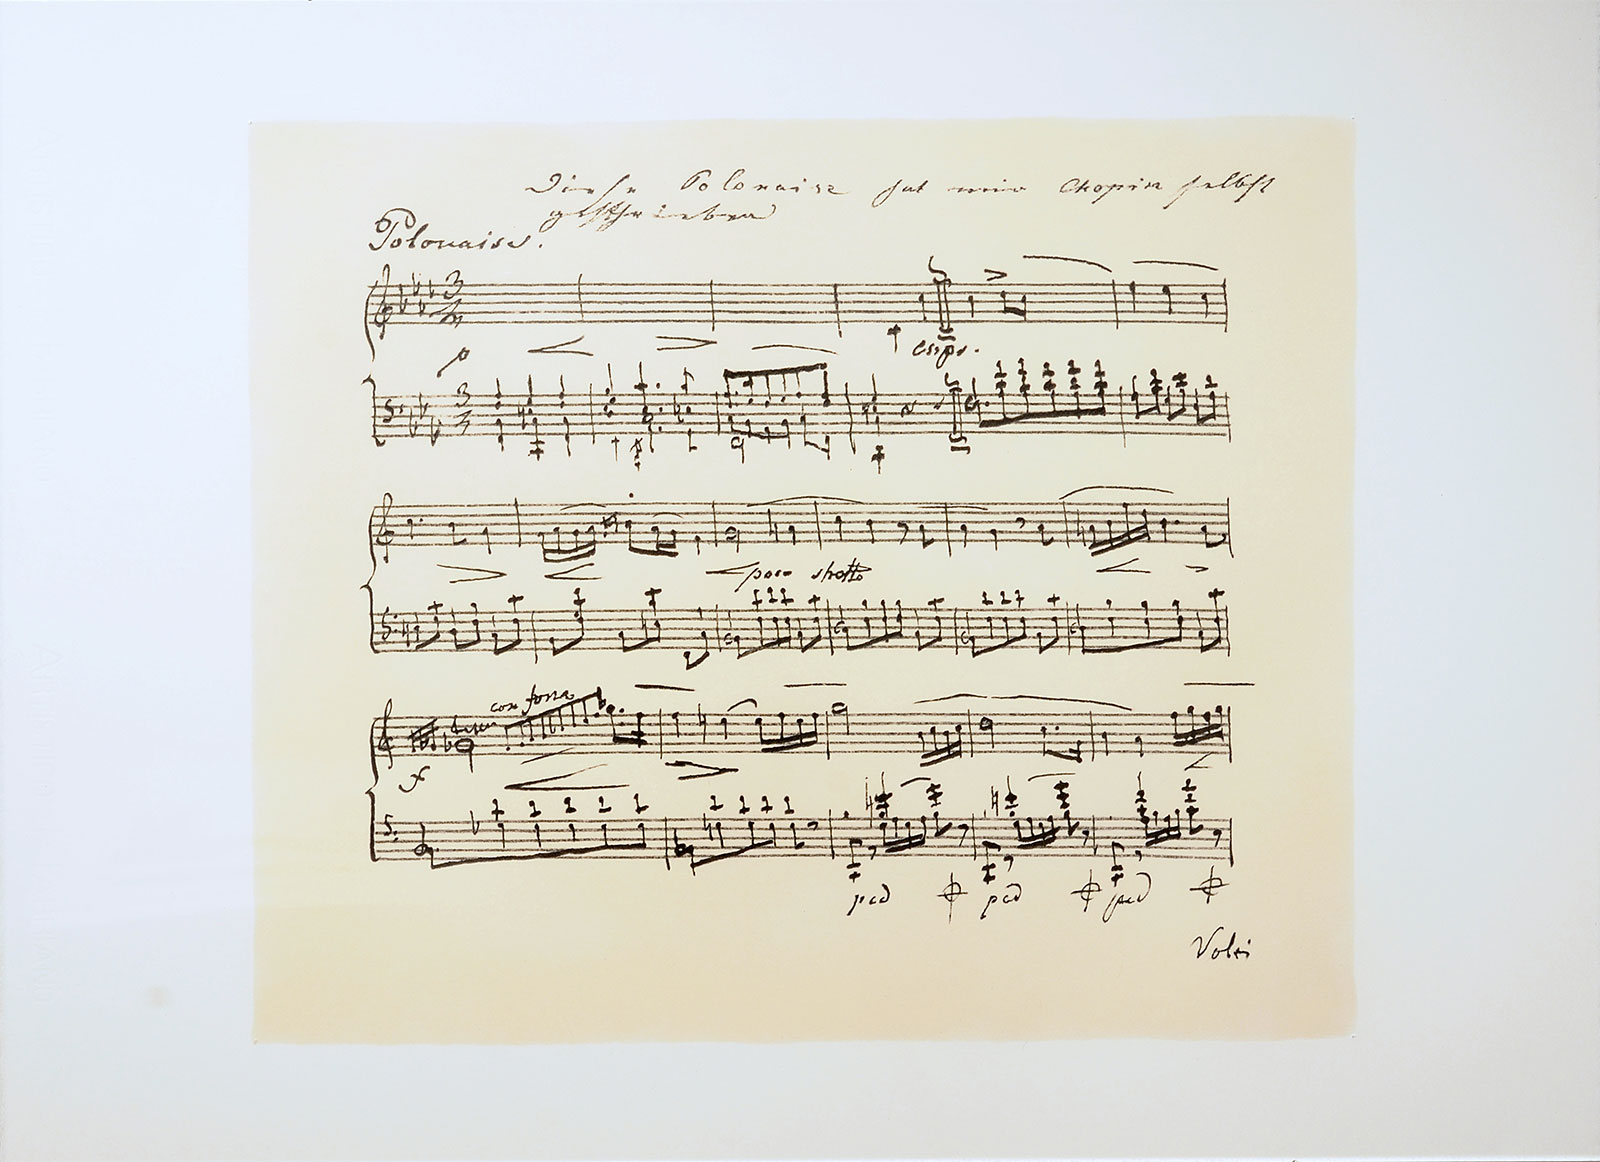 Diese Polonaise hat mir Chopin selbst
geschrieben
Polonaise.
p
poco stretto
con forza
f
ped ped ped
Volti